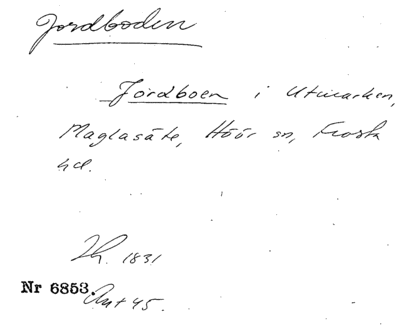 Jordboden
Jördboen i Utmarken,
Maglasäte, Höör sn, Frosta
hd.
Lh. 1831
Nr 6853. Ant 45.